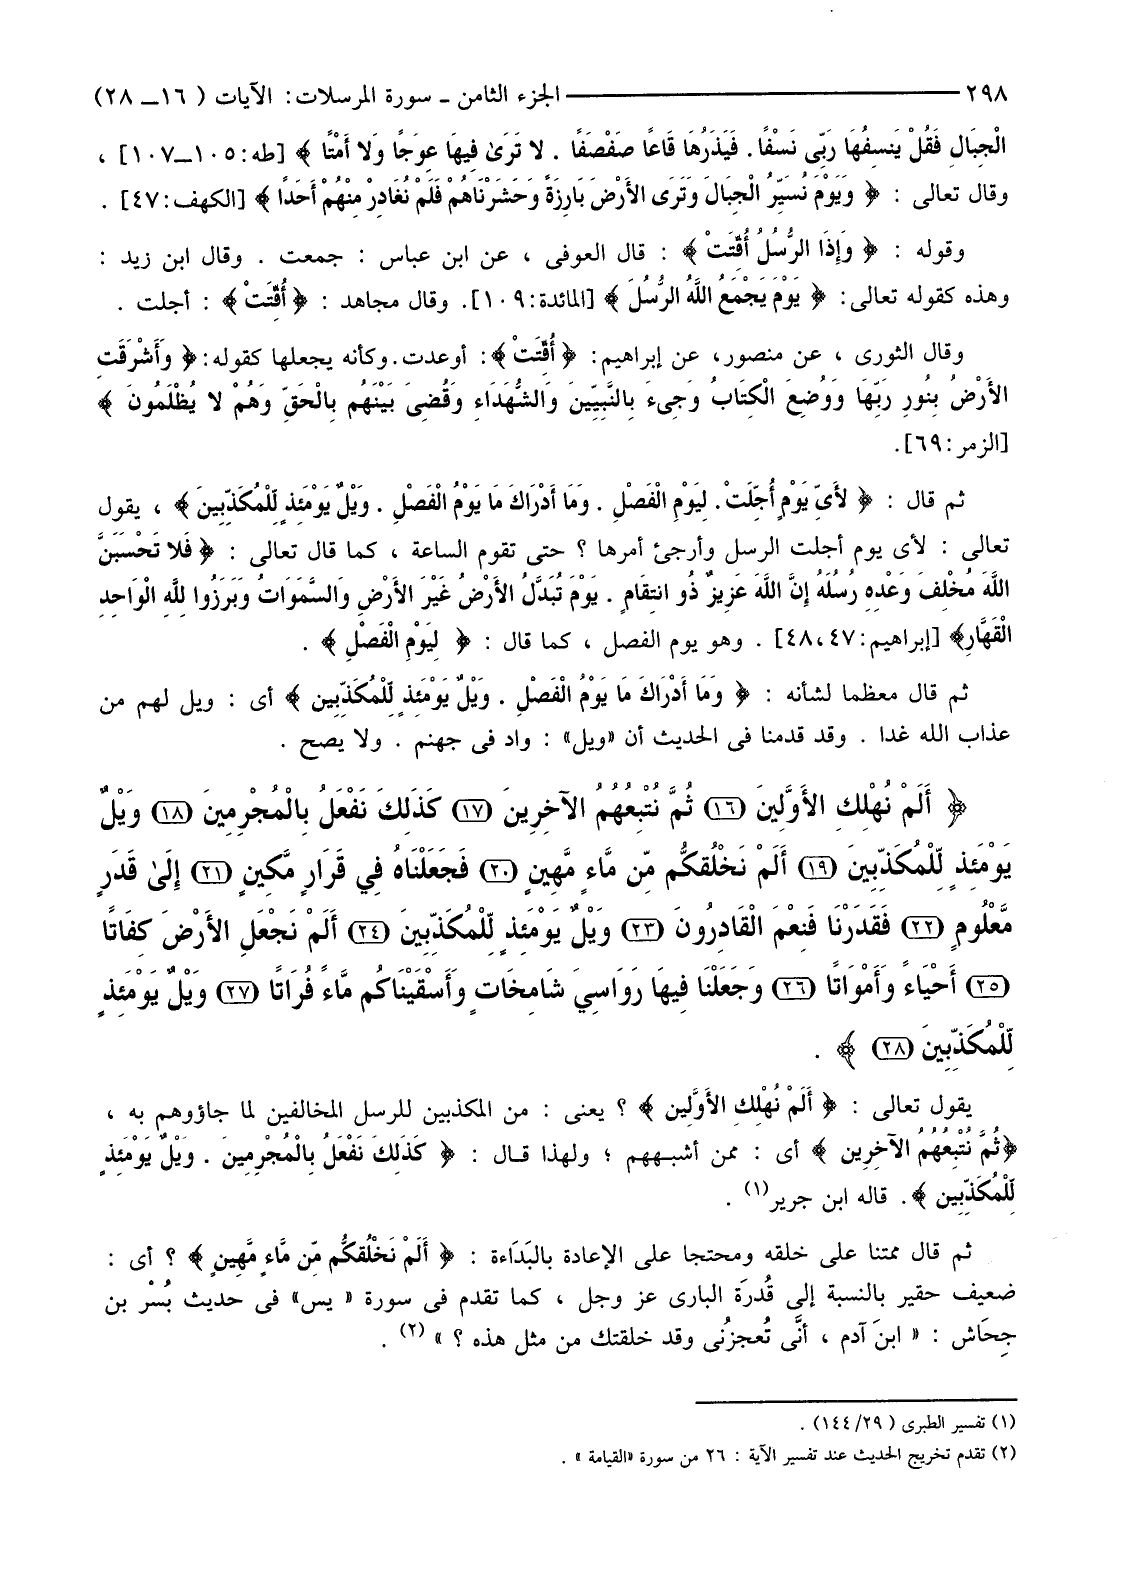 ٢٩٨ ــــــــ الجزء الثامن - سورة المرسلات: الآيات ( ١٦ ــ ٢٨)
الْجِبَالِ فَقُلْ يَنسِفُهَا رَبِّى نَسْفًا. فَيَذَرُهَا قَاعًا صَفْصَفًا . لا تَرَىٰ فِيهَا عِوَجًا وَلا أَمْتًا ﴾ [طه:١٠٥ــ١٠٧] ،
وقال تعالى : ﴿ وَيَوْمَ نُسَيِّرُ الْجِبَالَ وَتَرَى الأَرْضَ بَارِزَةً وَحَشَرْنَاهُمْ فَلَمْ نُغَادِرْ مِنْهُمْ أَحَدًا ﴾ [الكهف:٤٧] .
وقوله : ﴿ وَإِذَا الرُّسُلُ أُقِّتَتْ ﴾ : قال العوفى ، عن ابن عباس : جمعت . وقال ابن زيد :
وهذه كقوله تعالى: ﴿ يَوْمَ يَجْمَعُ اللَّهُ الرُّسُلَ ﴾ [المائدة:١٠٩]. وقال مجاهد : ﴿ أُقِّتَتْ ﴾ : أجلت .
وقال الثورى ، عن منصور، عن إبراهيم: ﴿ أُقِّتَتْ ﴾: أوعدت.وكأنه يجعلها كقوله:﴿ وَأَشْرَقَتِ
الأَرْضُ بِنُورِ رَبِّهَا وَوُضِعَ الْكِتَابُ وَجِىءَ بِالنَّبِيِّينَ وَالشُّهَدَاءِ وَقُضِىَ بَيْنَهُم بِالْحَقِّ وَهُمْ لا يُظْلَمُونَ ﴾
[الزمر:٦٩].
ثم قال : ﴿ لأَىِّ يَوْمٍ أُجِّلَتْ. لِيَوْمِ الْفَصْلِ . وَمَا أَدْرَاكَ مَا يَوْمُ الْفَصْلِ . وَيْلٌ يَوْمَئِذٍ لِّلْمُكَذِّبِينَ ﴾ ، يقول
تعالى : لأى يوم أجلت الرسل وأرجئ أمرها ؟ حتى تقوم الساعة ، كما قال تعالى : ﴿ فَلا تَحْسَبَنَّ
اللَّهَ مُخْلِفَ وَعْدِهِ رُسُلَهُ إِنَّ اللَّهَ عَزِيزٌ ذُو انتِقَامٍ . يَوْمَ تُبَدَّلُ الأَرْضُ غَيْرَ الأَرْضِ وَالسَّمَوَاتُ وَبَرَزُوا لِلَّهِ الْوَاحِدِ
الْقَهَّارِ﴾ [إبراهيم:٤٧، ٤٨] . وهو يوم الفصل ، كما قال : ﴿ لِيَوْمِ الْفَصْلِ ﴾ .
ثم قال معظما لشأنه : ﴿ وَمَا أَدْرَاكَ مَا يَوْمُ الْفَصْلِ . وَيْلٌ يَوْمَئِذٍ لِّلْمُكَذِّبِينَ ﴾ أى : ويل لهم من
عذاب الله غدا . وقد قدمنا فى الحديث أن «ويل» : واد فى جهنم . ولا يصح .
﴿ أَلَمْ نُهْلِكِ الأَوَّلِينَ (١٦) ثُمَّ نُتْبِعُهُمُ الآخِرِينَ (١٧) كَذَلِكَ نَفْعَلُ بِالْمُجْرِمِينَ (١٨) وَيْلٌ
يَوْمَئِذٍ لِّلْمُكَذِّبِينَ (١٩) أَلَمْ نَخْلُقكُّم مِّن مَّاءٍ مَّهِينٍ (٢٠) فَجَعَلْنَاهُ فِي قَرَارٍ مَّكِينٍ (٢١) إِلَىٰ قَدَرٍ
مَّعْلُومٍ (٢٢) فَقَدَرْنَا فَنِعْمَ الْقَادِرُونَ (٢٣) وَيْلٌ يَوْمَئِذٍ لِّلْمُكَذِّبِينَ (٢٤) أَلَمْ نَجْعَلِ الأَرْضَ كِفَاتًا
(٢٥) أَحْيَاءً وَأَمْوَاتًا (٢٦) وَجَعَلْنَا فِيهَا رَوَاسِيَ شَامِخَاتٍ وَأَسْقَيْنَاكُم مَّاءً فُرَاتًا (٢٧) وَيْلٌ يَوْمَئِذٍ
لِّلْمُكَذِّبِينَ (٢٨) ﴾ .
يقول تعالى : ﴿ أَلَمْ نُهْلِكِ الأَوَّلِينَ ﴾ ؟ يعنى : من المكذبين للرسل المخالفين لما جاؤوهم به ،
﴿ثُمَّ نُتْبِعُهُمُ الآخِرِينَ ﴾ أى : ممن أشبههم ؛ ولهذا قال : ﴿ كَذَلِكَ نَفْعَلُ بِالْمُجْرِمِينَ . وَيْلٌ يَوْمَئِذٍ
لِّلْمُكَذِّبِينَ ﴾. قاله ابن جرير(١) .
ثم قال ممتنا على خلقه ومحتجا على الإعادة بالبَدَاءة : ﴿ أَلَمْ نَخْلُقكُّم مِّن مَّاءٍ مَّهِينٍ ﴾ ؟ أى :
ضعيف حقير بالنسبة إلى قُدرَة البارى عز وجل ، كما تقدم فى سورة « يس» فى حديث بُسْر بن
جِحَاش : « ابنَ آدم ، أنَّى تُعجزُنى وقد خلقتك من مثل هذه ؟ » (٢) .
(١) تفسير الطبرى ( ٢٩/ ١٤٤) .
(٢) تقدم تخريج الحديث عند تفسير الآية : ٢٦ من سورة «القيامة » .